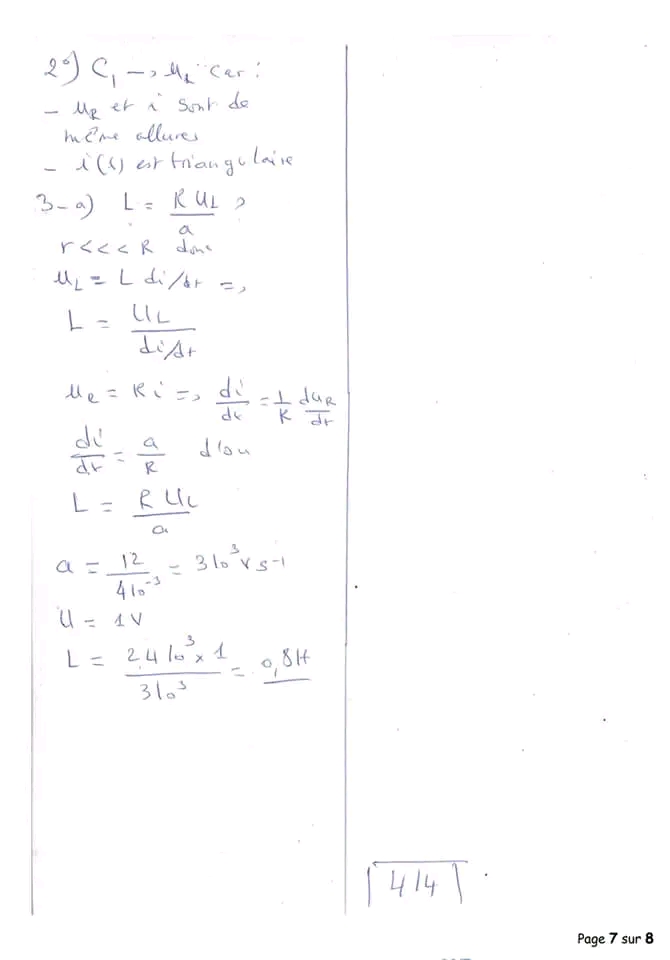 2°) C₁ → u_R car :
- u_R et i sont de
même allures
- i(t) est triangulaire
3-a) L = R U_L / a ?
r <<< R donc
u_L = L di/dt =>
L = U_L / di/dt
u_R = R i => di/dt = 1/R du_R/dt
di/dt = a/R d'où
L = R U_L / a
a = 12 / 4 10⁻³ = 3 10³ V s⁻¹
U = 1V
L = 2,4 10³ x 1 / 3 10³ = 0,8H
4/4
Page 7 sur 8